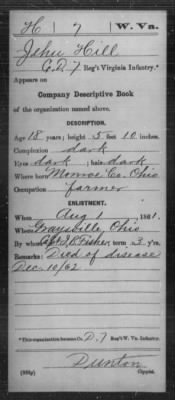 H | 7 | W. Va.
John Hill
Co. D, 7 Reg't Virginia Infantry.*
Appears on
Company Descriptive Book
of the organization named above.
DESCRIPTION.
Age 18 years; height 5 feet 10 inches.
Complexion dark
Eyes dark; hair dark
Where born Monroe Co. Ohio
Occupation farmer
ENLISTMENT.
When Aug 1, 1861.
Where Graysville, Ohio
By whom Fisher, term 3 y'rs.
Remarks: Died of disease
Dec. 10/62
*This organization became Co. D, 7 Reg't W. Va. Infantry.
Dunton
Copyist.